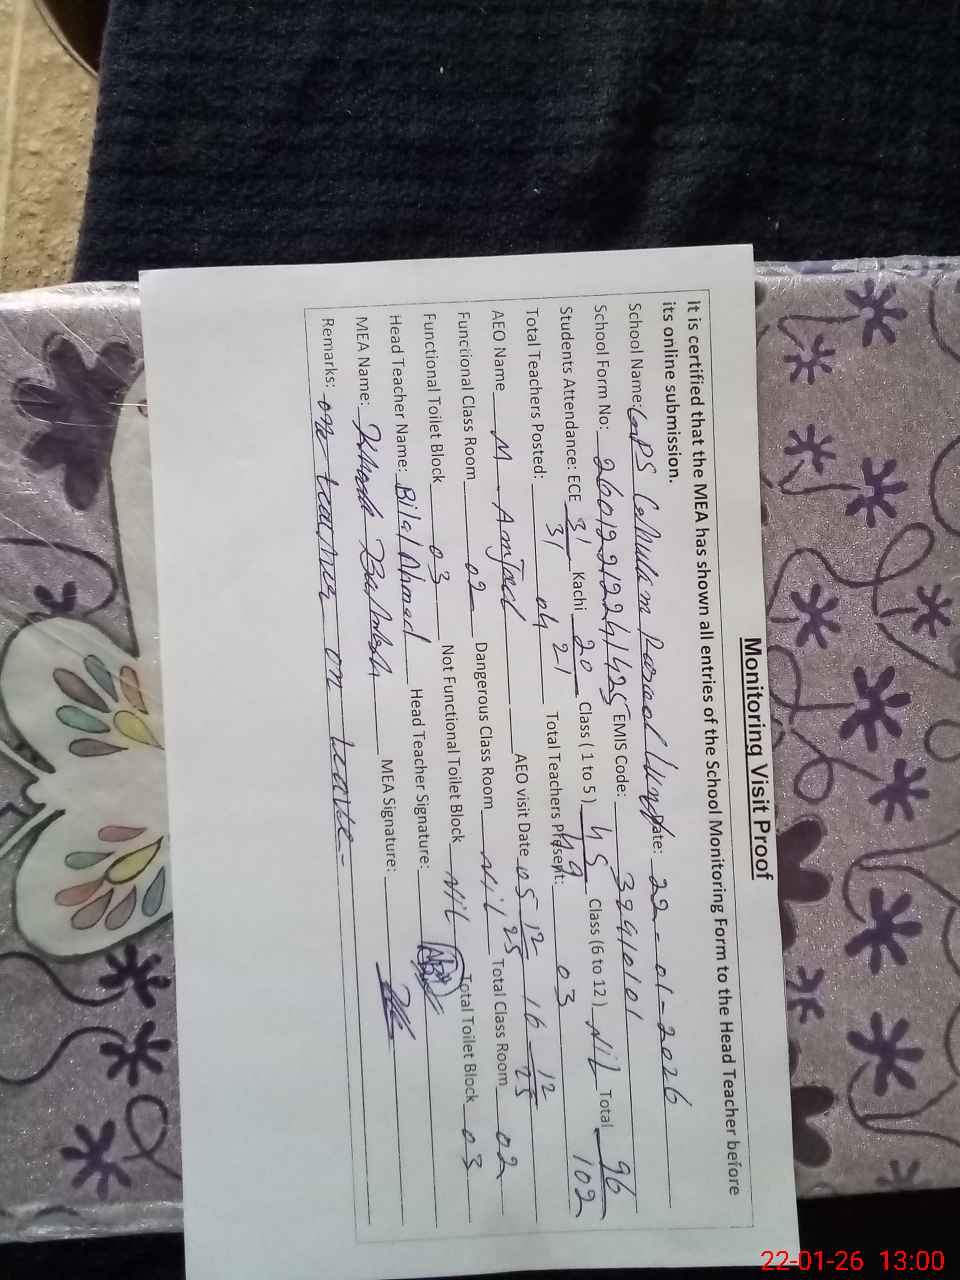 Monitoring Visit Proof
It is certified that the MEA has shown all entries of the School Monitoring Form to the Head Teacher before
its online submission.
School Name: GPS Date: 22-01-2026
School Form No: 26012212241425 EMIS Code: 32410101
Students Attendance: ECE 31 Kachi 20 Class ( 1 to 5 ) 45 Class (6 to 12 ) Nil Total 96
31 21 49 102
Total Teachers Posted: 04 Total Teachers Present: 03
AEO Name M. Amjad AEO visit Date 05 12/25 16 12/25
Functional Class Room 02 Dangerous Class Room Nil Total Class Room 02
Functional Toilet Block 03 Not Functional Toilet Block Nil Total Toilet Block 03
Head Teacher Name: Bilal Ahmed Head Teacher Signature:
MEA Name: Khuda Bakhsh MEA Signature:
Remarks: one teacher on leave-
22-01-26 13:00